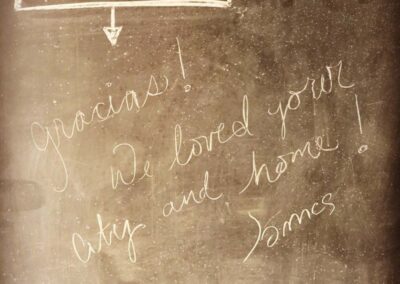 gracias!
We loved your
city and home!
James